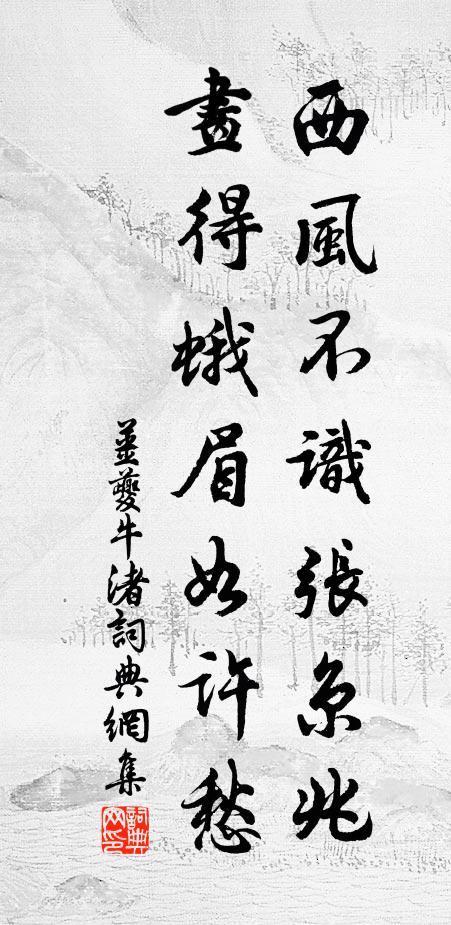 西風不識張京兆
畫得蛾眉如許愁
姜夔牛渚詞典網集
詞典網印